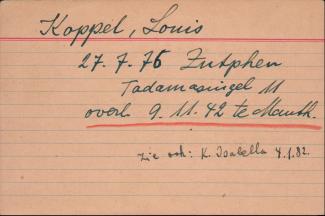 Koppel, Louis
27.7.76 Zutphen
Tadamasingel 11
overl. 9.11.42 te Mauth.
zie ook: K. Isabella 4.1.82.